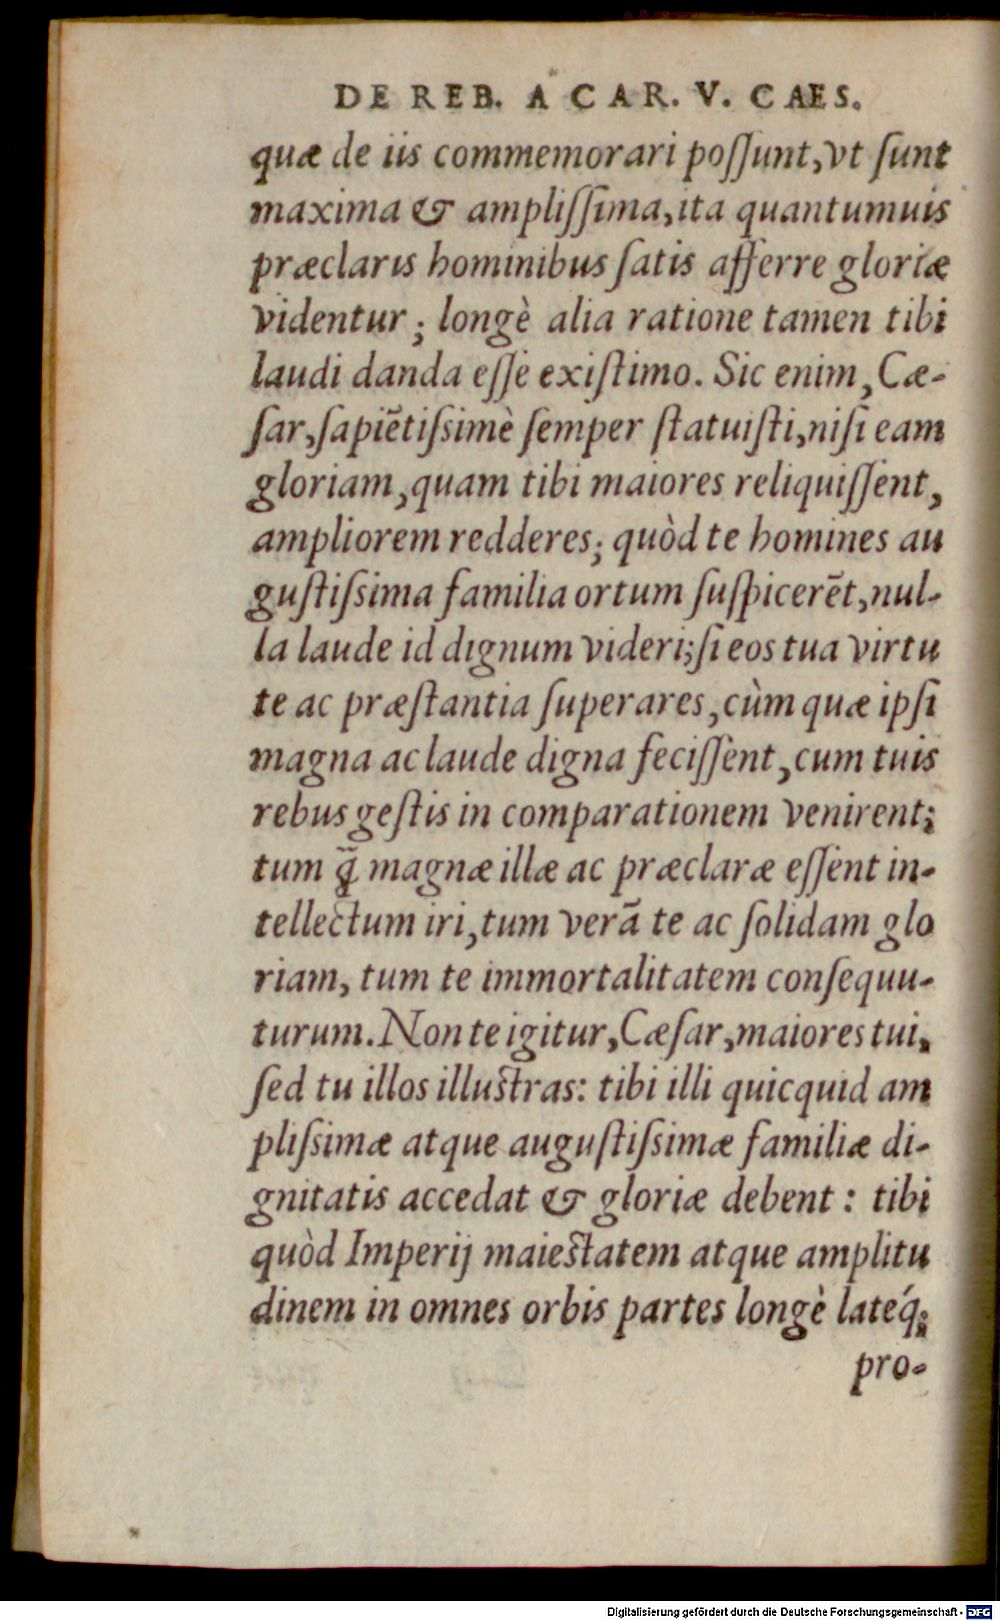 DE REB. A CAR. V. CAES.
quæ de iis commemorari poſſunt, vt ſunt
maxima & ampliſſima, ita quantumuis
præclaris hominibus ſatis afferre gloriæ
videntur; longè alia ratione tamen tibi
laudi danda eſſe exiſtimo. Sic enim, Cæ-
ſar, ſapiẽtiſsimè ſemper ſtatuiſti, niſi eam
gloriam, quam tibi maiores reliquiſſent,
ampliorem redderes; quòd te homines au
guſtiſsima familia ortum ſuſpicerẽt, nul-
la laude id dignum videri; ſi eos tua virtu
te ac præſtantia ſuperares, cùm quæ ipſi
magna ac laude digna feciſſent, cum tuis
rebus geſtis in comparationem venirent;
tum q̃ magnæ illæ ac præclaræ eſſent in-
tellectum iri, tum verã te ac ſolidam glo
riam, tum te immortalitatem conſequu-
turum. Non te igitur, Cæſar, maiores tui,
ſed tu illos illustras: tibi illi quicquid am
pliſsimæ atque auguſtiſsimæ familiæ di-
gnitatis accedat & gloriæ debent: tibi
quòd Imperij maiestatem atque amplitu
dinem in omnes orbis partes longè latéq;
pro-
Digitalisierung gefördert durch die Deutsche Forschungsgemeinschaft - DFG